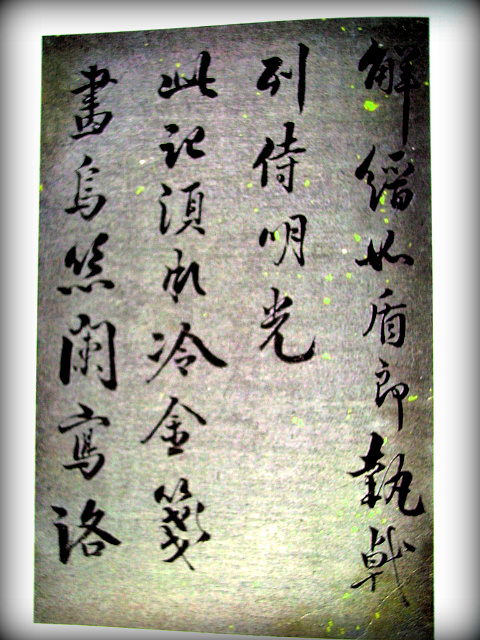 解縉如盾郎執戟
列侍明光
此記須冷金箋
畫烏絲闌寫洛